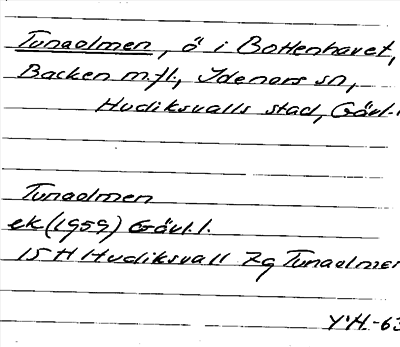 Tunaolmen, ö i Bottenhavet,
Backen m.fl., Idenors sn,
Hudiksvalls stad, Gävl.l
Tunaolmen
ek (1959) Gävl.l.
15 H Hudiksvall 7g Tunaolmen
Y.H.-63